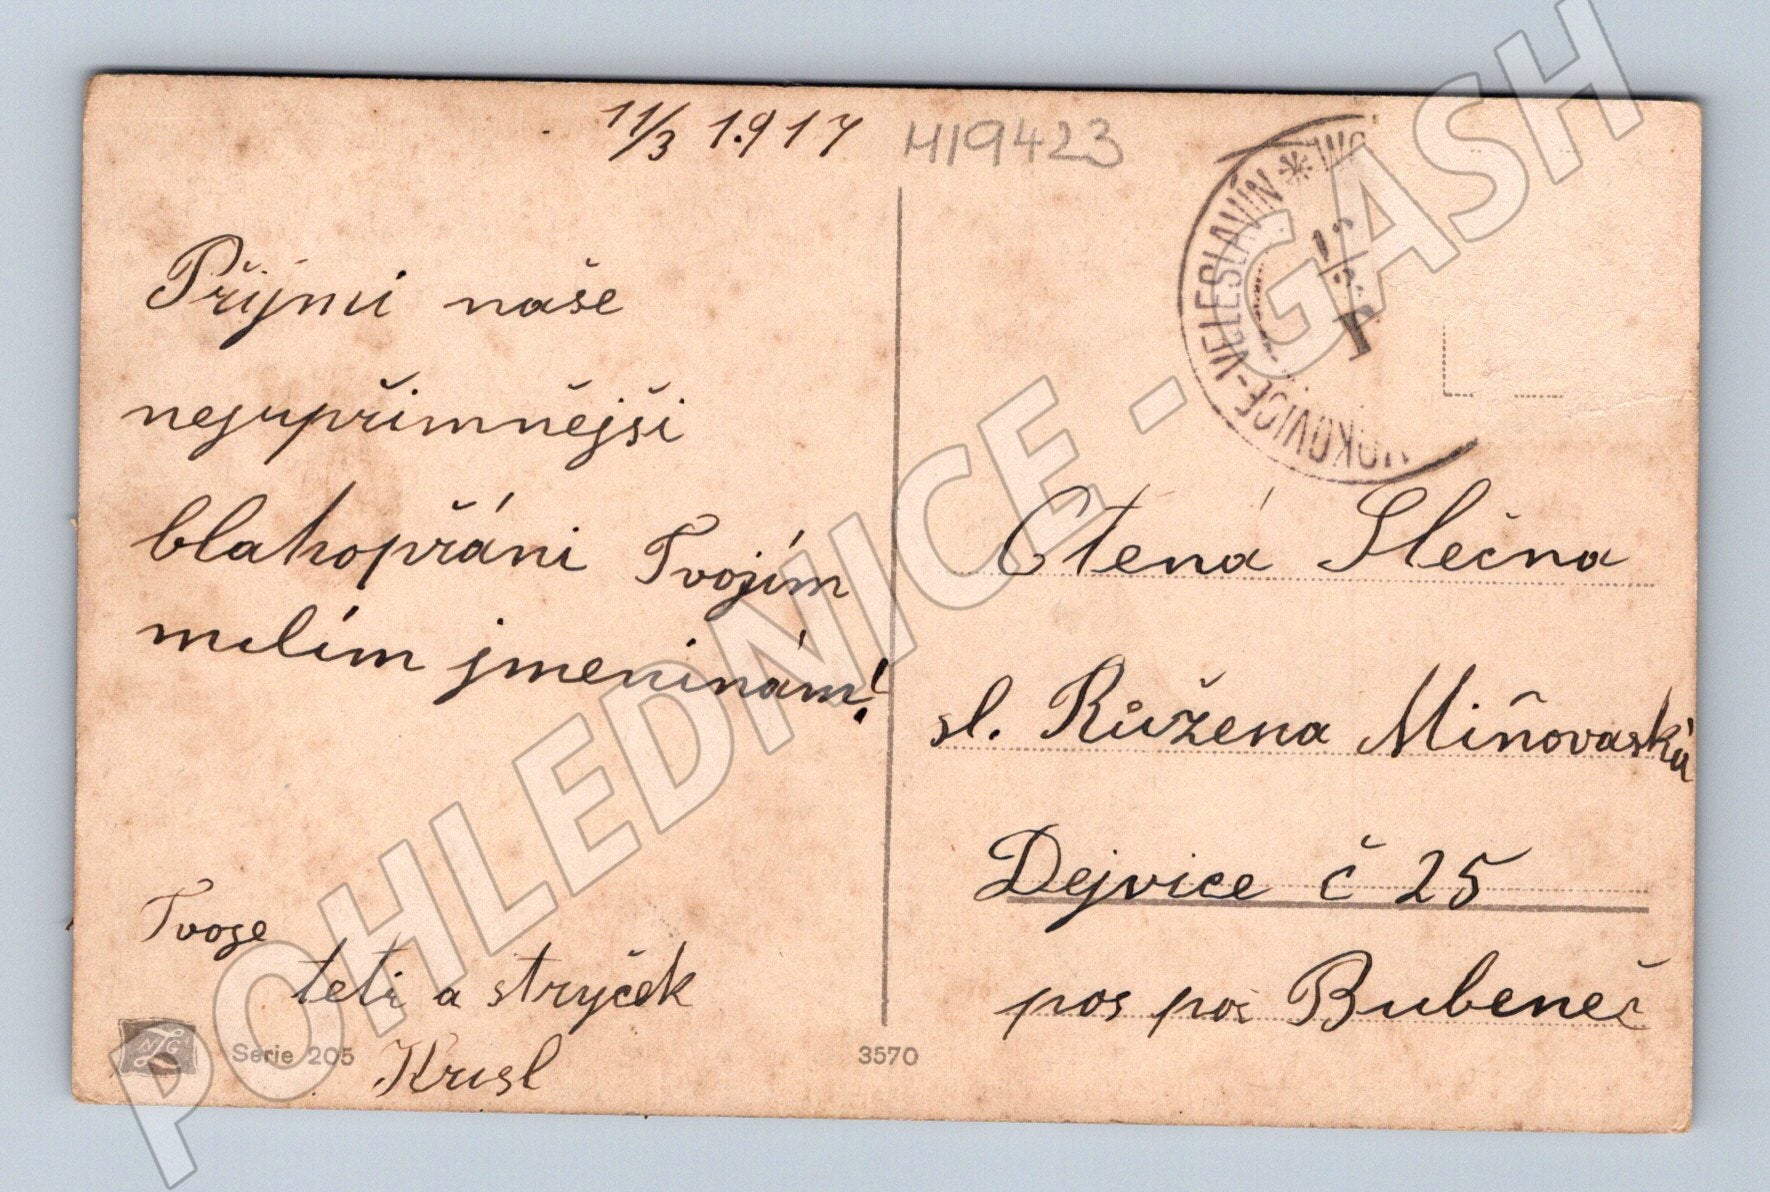 11/3 1917
H19423
Přijmi naše
nejupřimnějši
blahopřáni Tvojím
milím jmeninám!
Tvoje
teti a stryček
Krisl
NTG
Serie 205
3570
VOKOVICE-VELESLAVÍN * WO
I
Ctená Slečna
sl. Růžena Miňovaská
Dejvice č 25
pos poš Bubeneč
POHLEDNICE - GASH